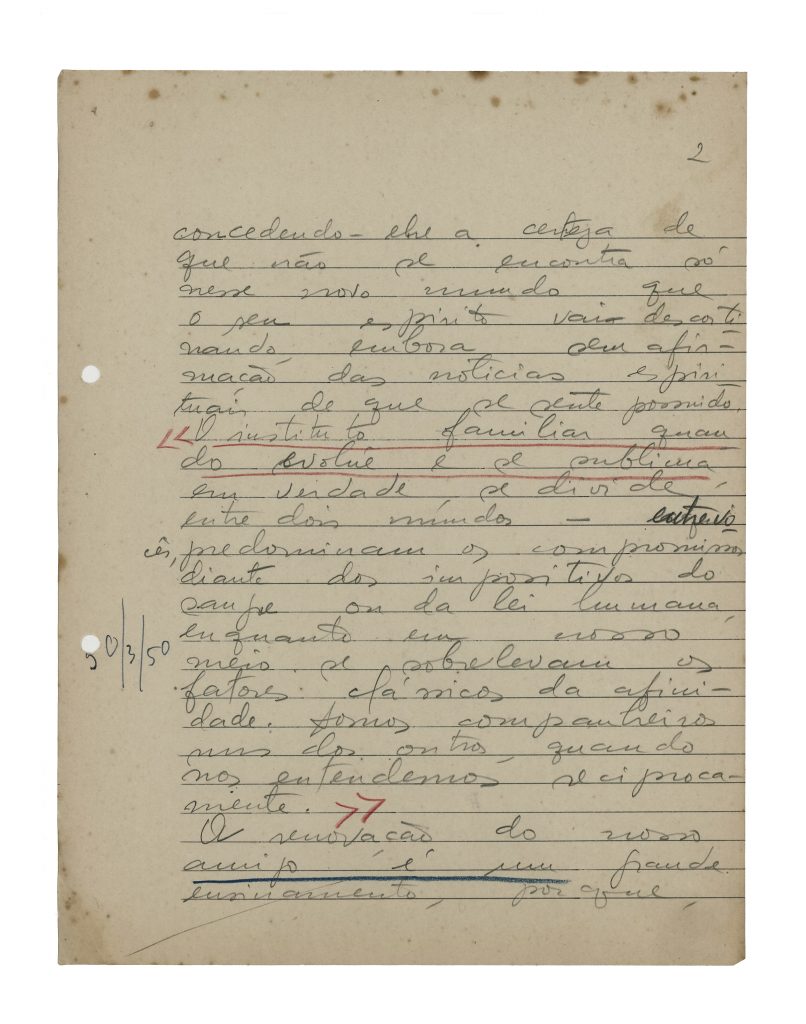 2
concedendo-lhe a certeza de
que não se encontra só
nesse novo mundo que
o seu espirito vai descorti
nando, embora sem afir-
mação das noticias espiri
tuais de que se sente possuido.
<< O instituto familiar quan
do evolue e se sublima
em verdade, se divide
entre dois mundos — entre vo
cês, predominam os compromissos
diante dos impositivos do
sangue ou da lei humana,
enquanto em nosso
30/3/50
meio se sobrelevam os
fatores clássicos da afini-
dade. Somos companheiros
uns dos outros, quando
nos entendemos reciproca-
mente. >>
A renovação do nosso
amigo é um grande
ensinamento, porque,